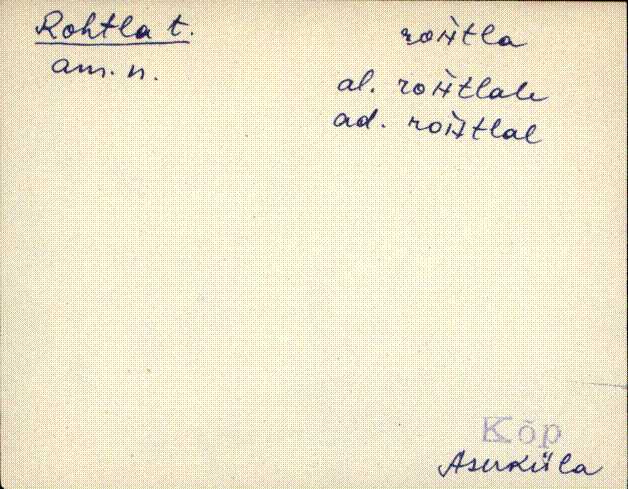 Rohtla t. roH̀tla
am. n.
al. roH̀tlale
ad. roH̀tlal
Kõp
Asuküla